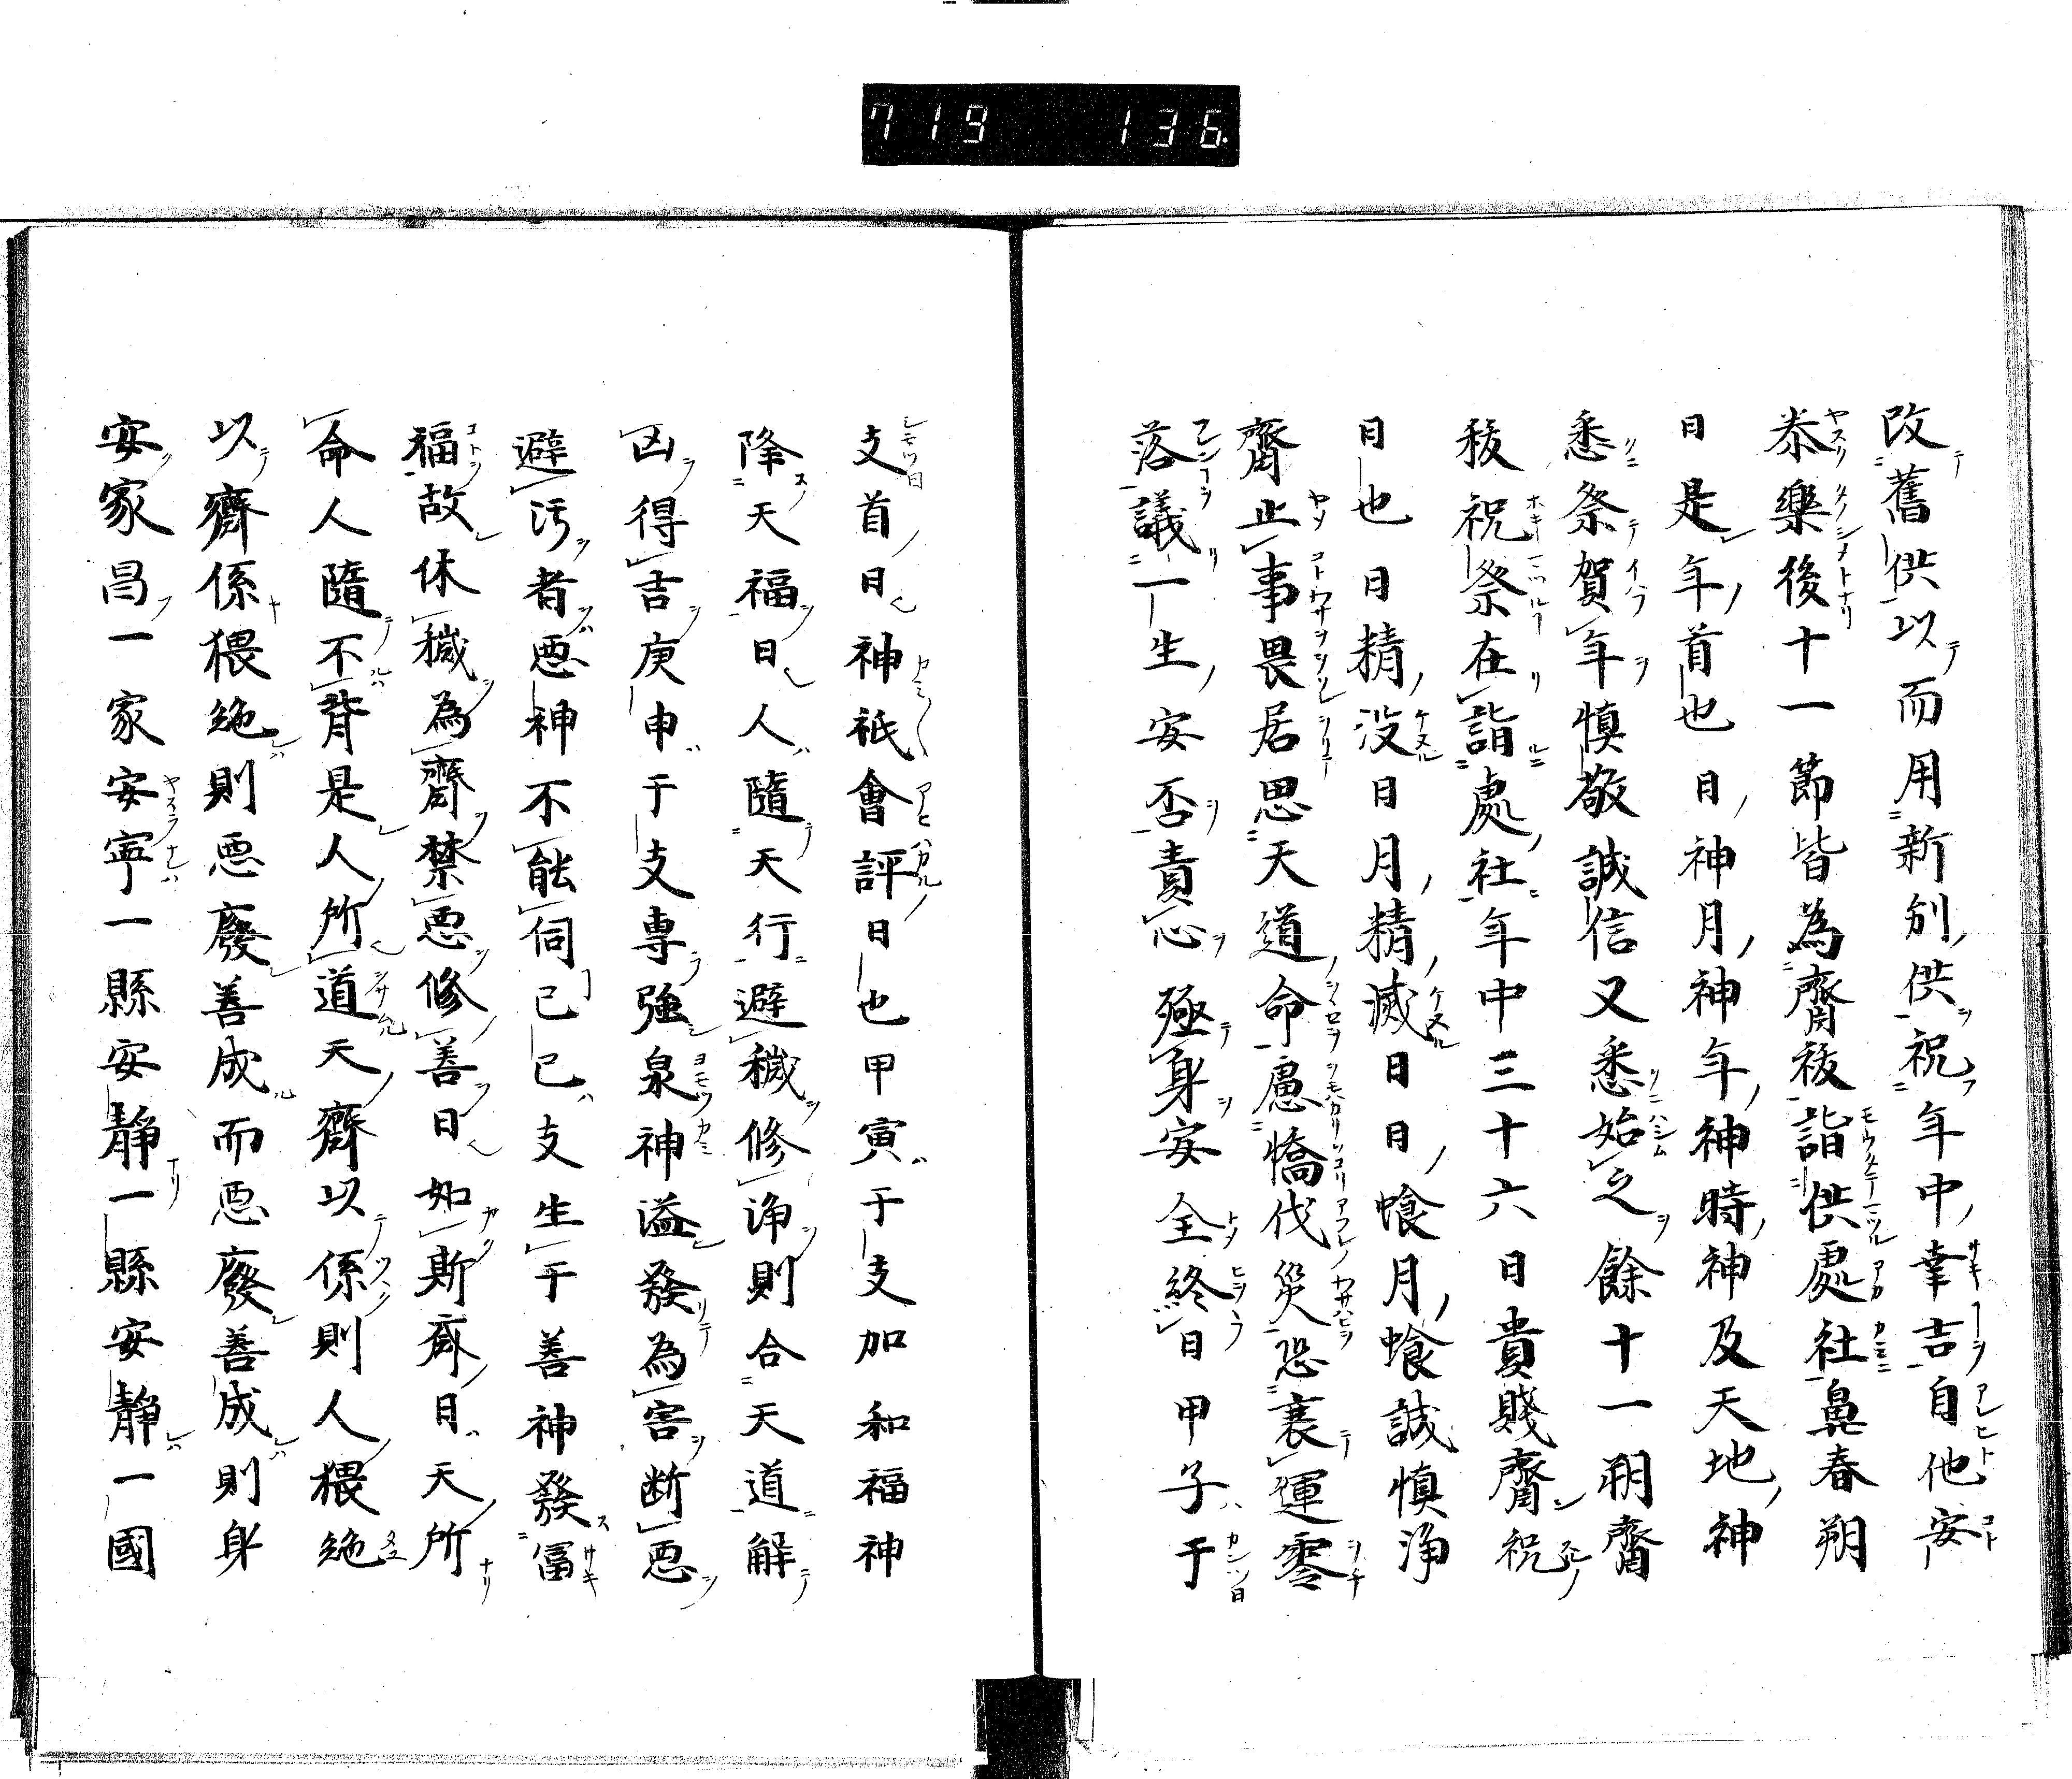 719 136
改舊供以而用新別供祝年中幸吉自他安
泰樂後十一節皆為齋祓詣供處社鼻春朔
日是年首也日神月神年神時神及天地神
悉祭賀年慎敬誠信又悉始之餘十一朔齋
祓祝祭在詣處社年中三十六日貴賤齋祝
日也日精没日月精滅日日喰月喰誠慎浄
齋止事畏居思天道命慮憍伐災恐衰運零
落議一生安否責心極身安全終日甲子干
支首日神祇會評日也甲寅干支加和福神
降天福日人隨天行避穢修浄則合天道解
凶得吉庚申干支専強泉神溢發為害断悪
避汚者悪神不能伺己巳支生干善神發冨
福故休穢為齋禁悪修善日如斯齋日天所
命人隨不背是人所道天齋以係則人猥絶
以齋係猥絶則悪廢善成而悪廢善成則身
安家昌一家安寧一縣安靜一縣安靜一國